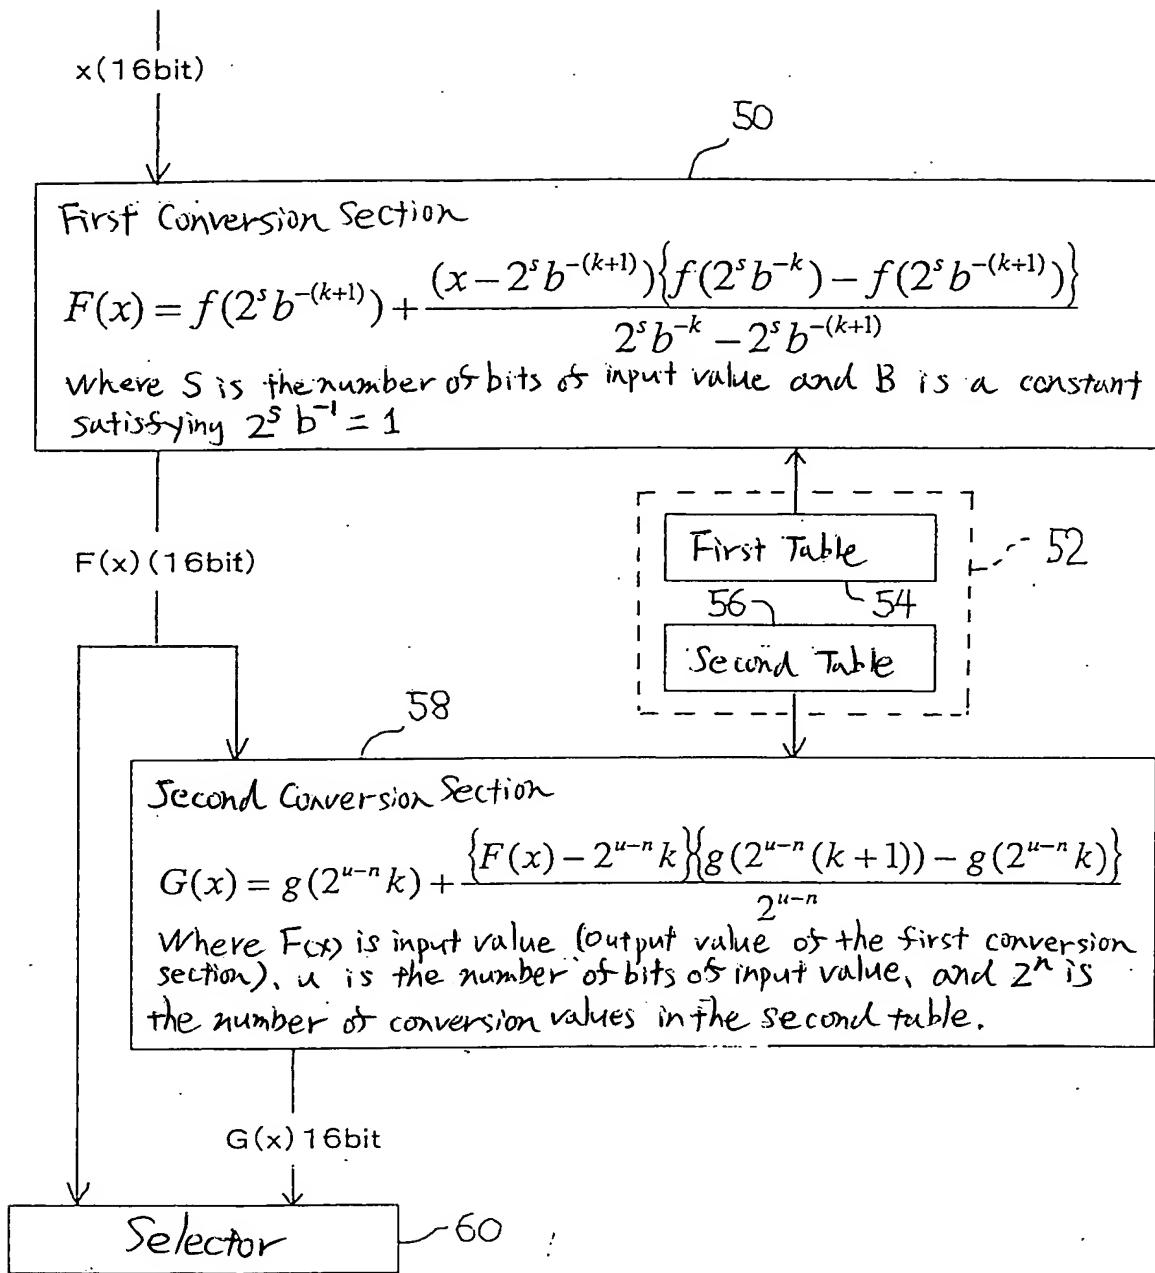 x(16bit)
50
First Conversion Section
F(x) = f(2^s b^{-(k+1)}) + \frac{(x - 2^s b^{-(k+1)})\{f(2^s b^{-k}) - f(2^s b^{-(k+1)})\}}{2^s b^{-k} - 2^s b^{-(k+1)}}
where S is the number of bits of input value and B is a constant
satisfying 2^s b^{-1} = 1
F(x)(16bit)
First Table
52
54
56
Second Table
58
Second Conversion Section
G(x) = g(2^{u-n} k) + \frac{\{F(x) - 2^{u-n} k\}\{g(2^{u-n}(k+1)) - g(2^{u-n} k)\}}{2^{u-n}}
Where F(x) is input value (output value of the first conversion
section), u is the number of bits of input value, and 2^n is
the number of conversion values in the second table.
G(x)16bit
Selector
60